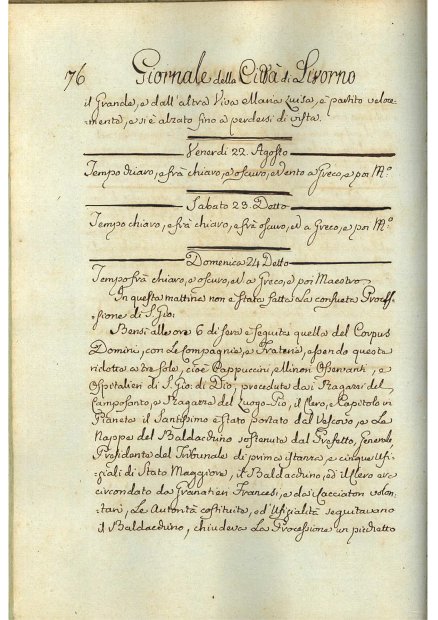 76 Giornale della Città di Livorno
il Grande, e dall'altra Viva Maria Luisa, è partito veloce-
mente, e si è alzato fino a perdersi di vista.
Venerdi 22. Agosto
Tempo chiaro, e frà chiaro, e oscuro, Vento a Greco, e poi M.o
Sabato 23. Detto
Tempo chiaro, e frà chiaro, e frà oscuro, V. a Greco, e poi M.o
Domenica 24 Detto
Tempo frà chiaro, e oscuro, V. a Greco, e poi Maestro
In questa mattina non è stata fatta la consueta Proces-
sione di S. Gio:
Bensi alle ore 6 di sera è seguita quella del Corpus
Domini, con le Compagnie, e Fraterie, essendo queste
ridotte a tre sole, cioè Cappuccini, Minori Osservanti, e
Ospitalieri di S. Gio: di Dio, precedute dai Ragazzi del
Camposanto, e Ragazze del Luogo-Pio, il Clero, e Capitolo in
Pianeta il Santissimo è stato portato dal Vescovo, e le
Nappe del Baldacchino sostenute dal Prefetto, Generale,
Presidente del Tribunale di prima istanza e cinque Ufi-
ziali di Stato Maggiore, il Baldacchino, ed il Clero era
circondato da Granatieri Francesi, e da Cacciatori volon-
tari, Le Autorità costituite, ed Ufizialità seguitavano
il Baldacchino, chiudeva la Processione un picchetto